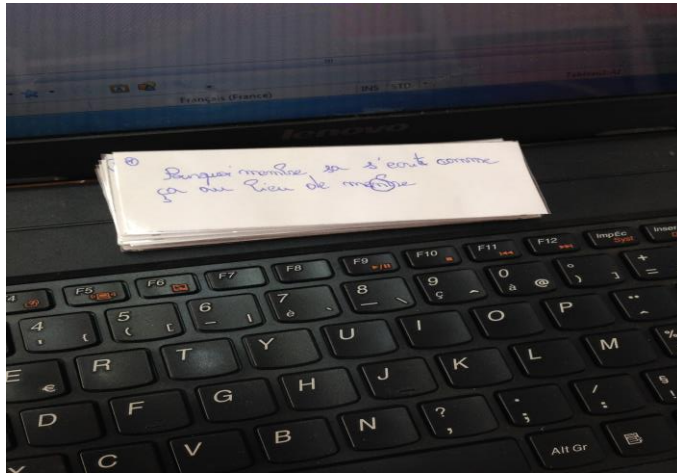 Français (France)
INS
STD
lenovo
Pourquoi membre, sa s'écrit comme
ça au lieu de membre
F5
F6
F7
F8
F9
F10
F11
F12
ImpÉc
Syst
Inser
4 ' {
5 ( [
6 - |
7 è `
8 _ \
9 ç ^
0 à @
° ) ]
+ =
E €
R
T
Y
U
I
O
P
¨ ^
D
F
G
H
J
K
L
M
%
C
V
B
N
? ,
. ;
/ :
§ !
Alt Gr